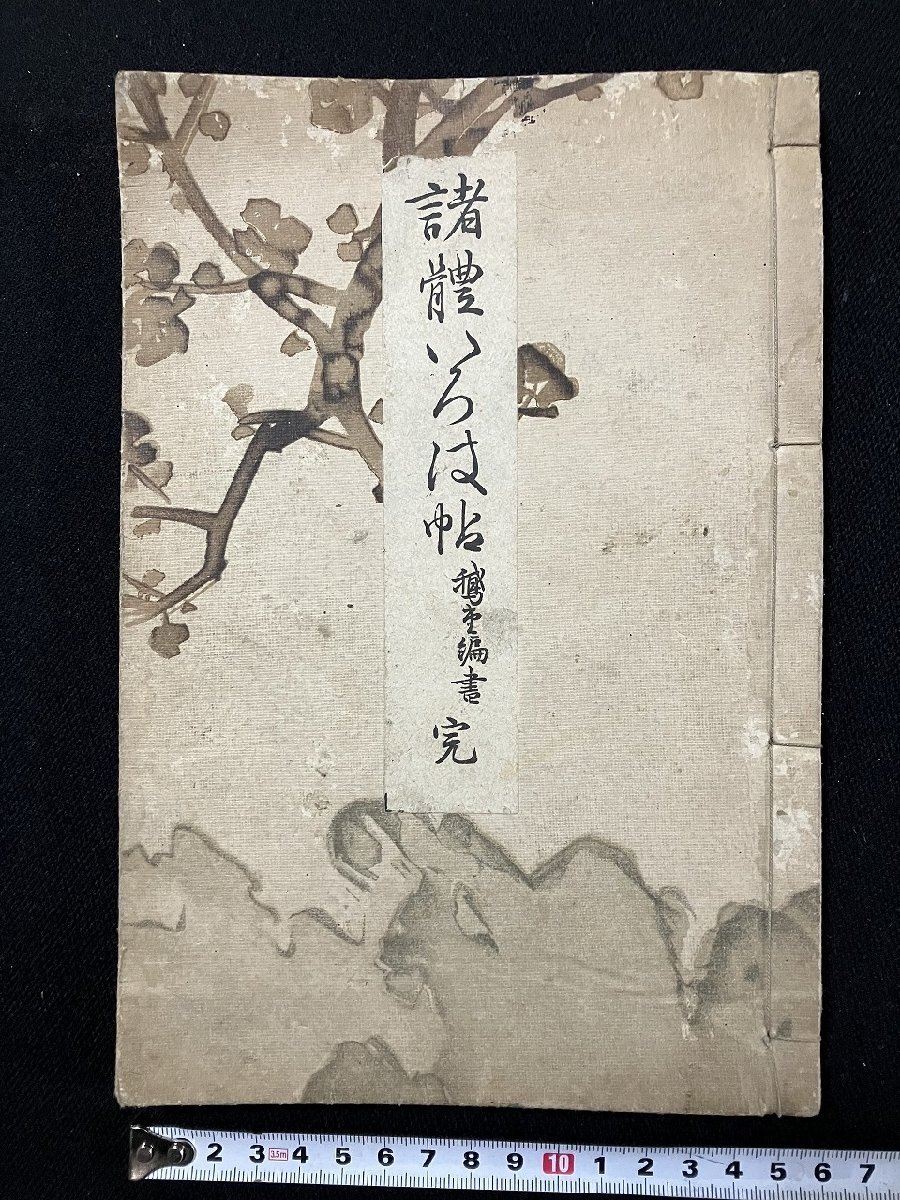 諸體いろは帖 鵞堂編書 完
2 3 3.5m 4 5 6 7 8 9 10 1 2 3 4 5 6 7